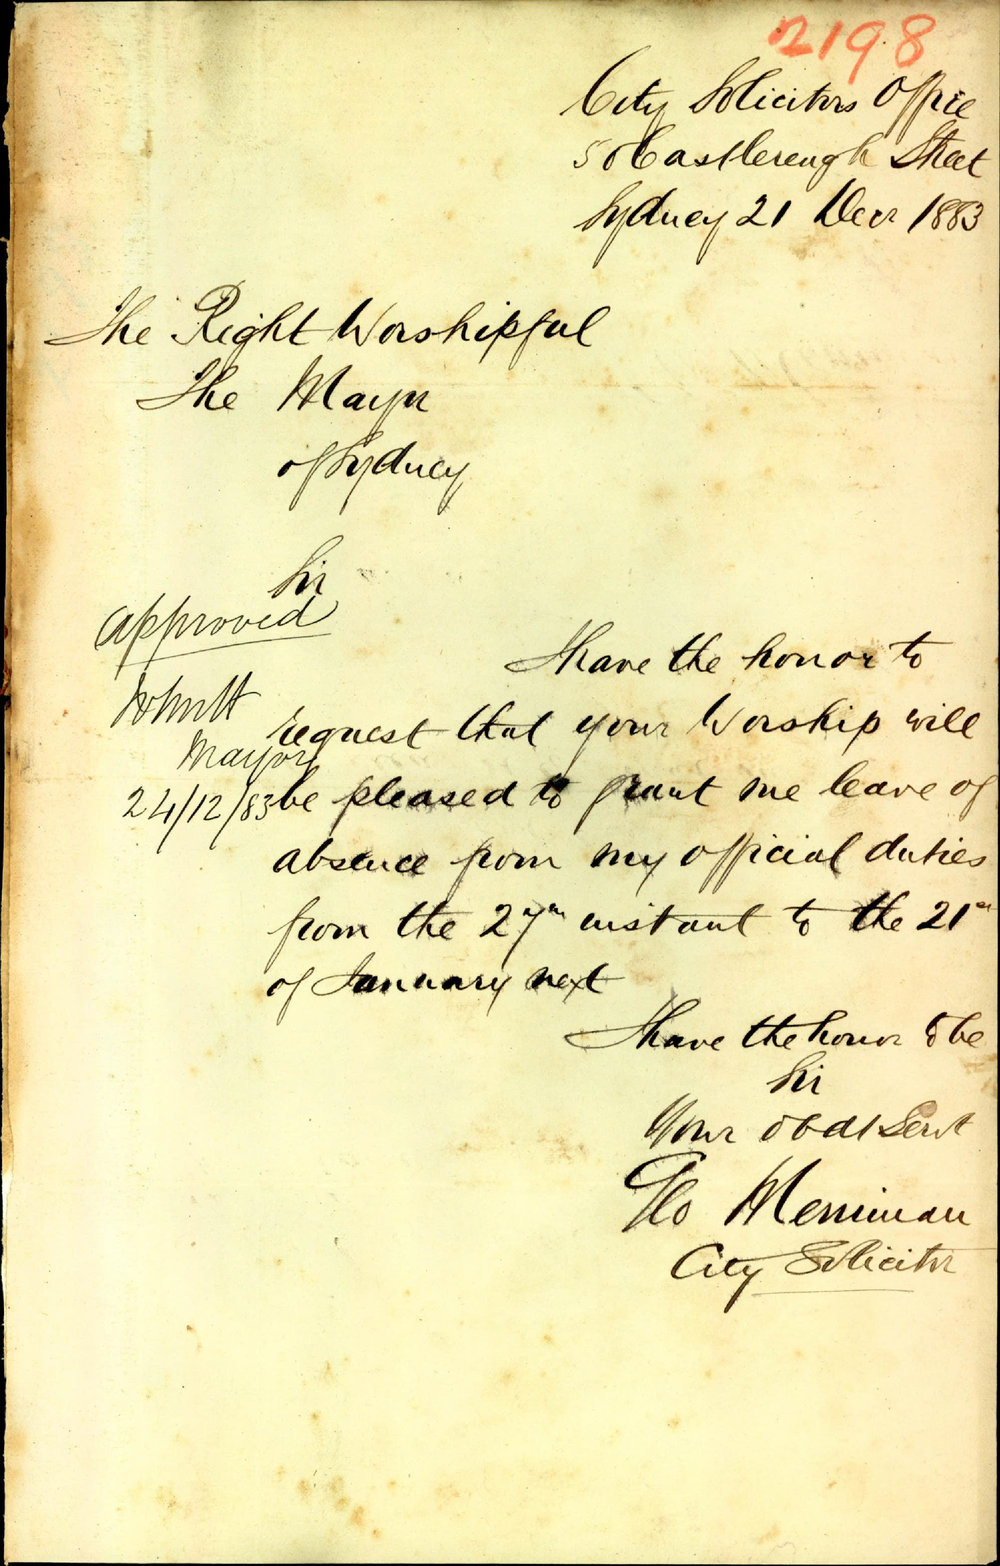 2198
City Solicitors Office
50 Castlereagh Street
Sydney 21 Decr 1883
The Right Worshipful
The Mayor
of Sydney
Sir
Approved
Mayor
24/12/83
I have the honor to
request that your Worship will
be pleased to grant me leave of
absence from my official duties
from the 27th instant to the 21st
of January next
I have the honor to be
Sir
Your obdt Servt
Geo Merriman
City Solicitor